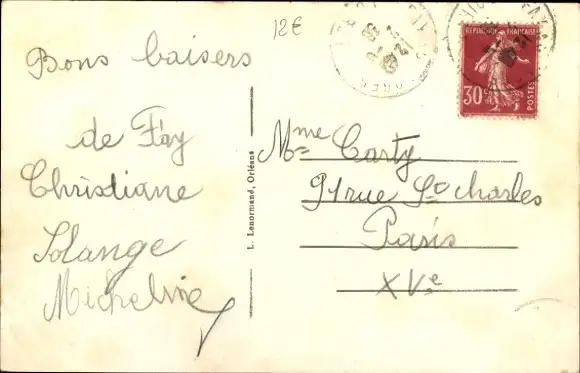 Bons baisers
de Fay
Christiane
Solange
Micheline
12€
L. Lenormand, Orléans
RÉPUBLIQUE FRANÇAISE
30c
POSTES
Mme Carty
91 rue St Charles
Paris
XVe